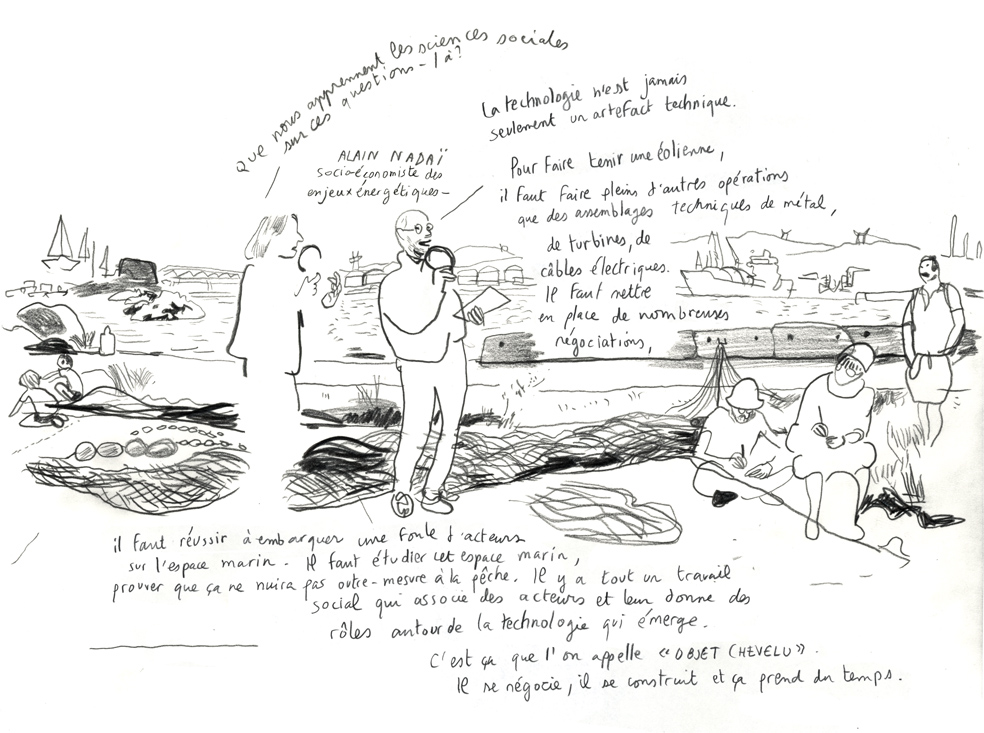 que nous apprennent les sciences sociales
sur ces questions-là?
La technologie n'est jamais
seulement un artefact technique.
ALAIN NADAÏ
socio-économiste des
enjeux énergétiques-
Pour faire tenir une éolienne,
il faut faire pleins d'autres opérations
que des assemblages techniques de métal,
de turbines, de
câbles électriques.
Il faut mettre
en place de nombreuses
négociations,
il faut réussir à embarquer une foule d'acteurs
sur l'espace marin. Il faut étudier cet espace marin,
prouver que ça ne nuira pas outre-mesure à la pêche. Il y a tout un travail
social qui associe des acteurs et leur donne des
rôles autour de la technologie qui émerge.
C'est ça que l'on appelle «OBJET CHEVELU».
Il se négocie, il se construit et ça prend du temps.